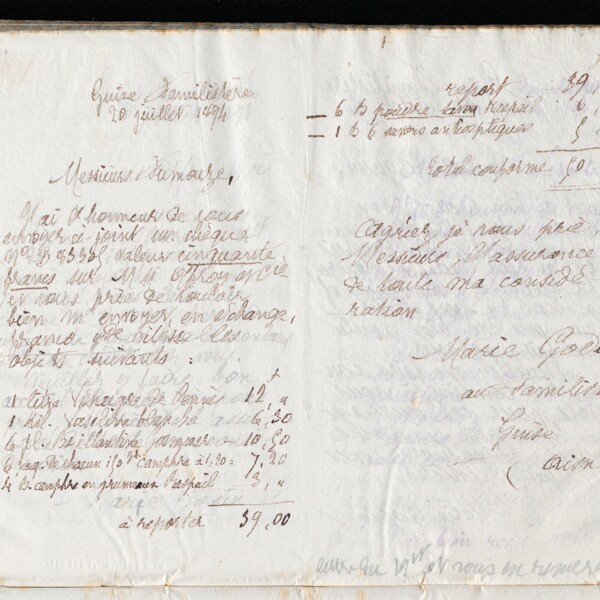 Guise Familistère
20 juillet 1894
Messieurs Fumouze,
J'ai l'honneur de vous
envoyer ci-joint un chèque
valeur cinquante
francs sur
et vous prie de vouloir
bien m'envoyer, en échange,
gde vitesse les
objets suivants :
1 litre Vinaigre de Pennès 12, "
1 Vaseline blanche 6,30
6 fl. Brillantine 10,50
6 paq. de chacun camphre à 1,20 = 7,20
4 B. camphre en grumeaux Raspail 3, "
à reporter 39,00
report 39
6 B poudre savon Raspail 6,
1 B 6 savons antiseptiques 5
Total conforme 50
Agréez, je vous prie,
Messieurs, l'assurance
de toute ma considé
ration
Marie God
au Familis
Guise
(Aisn